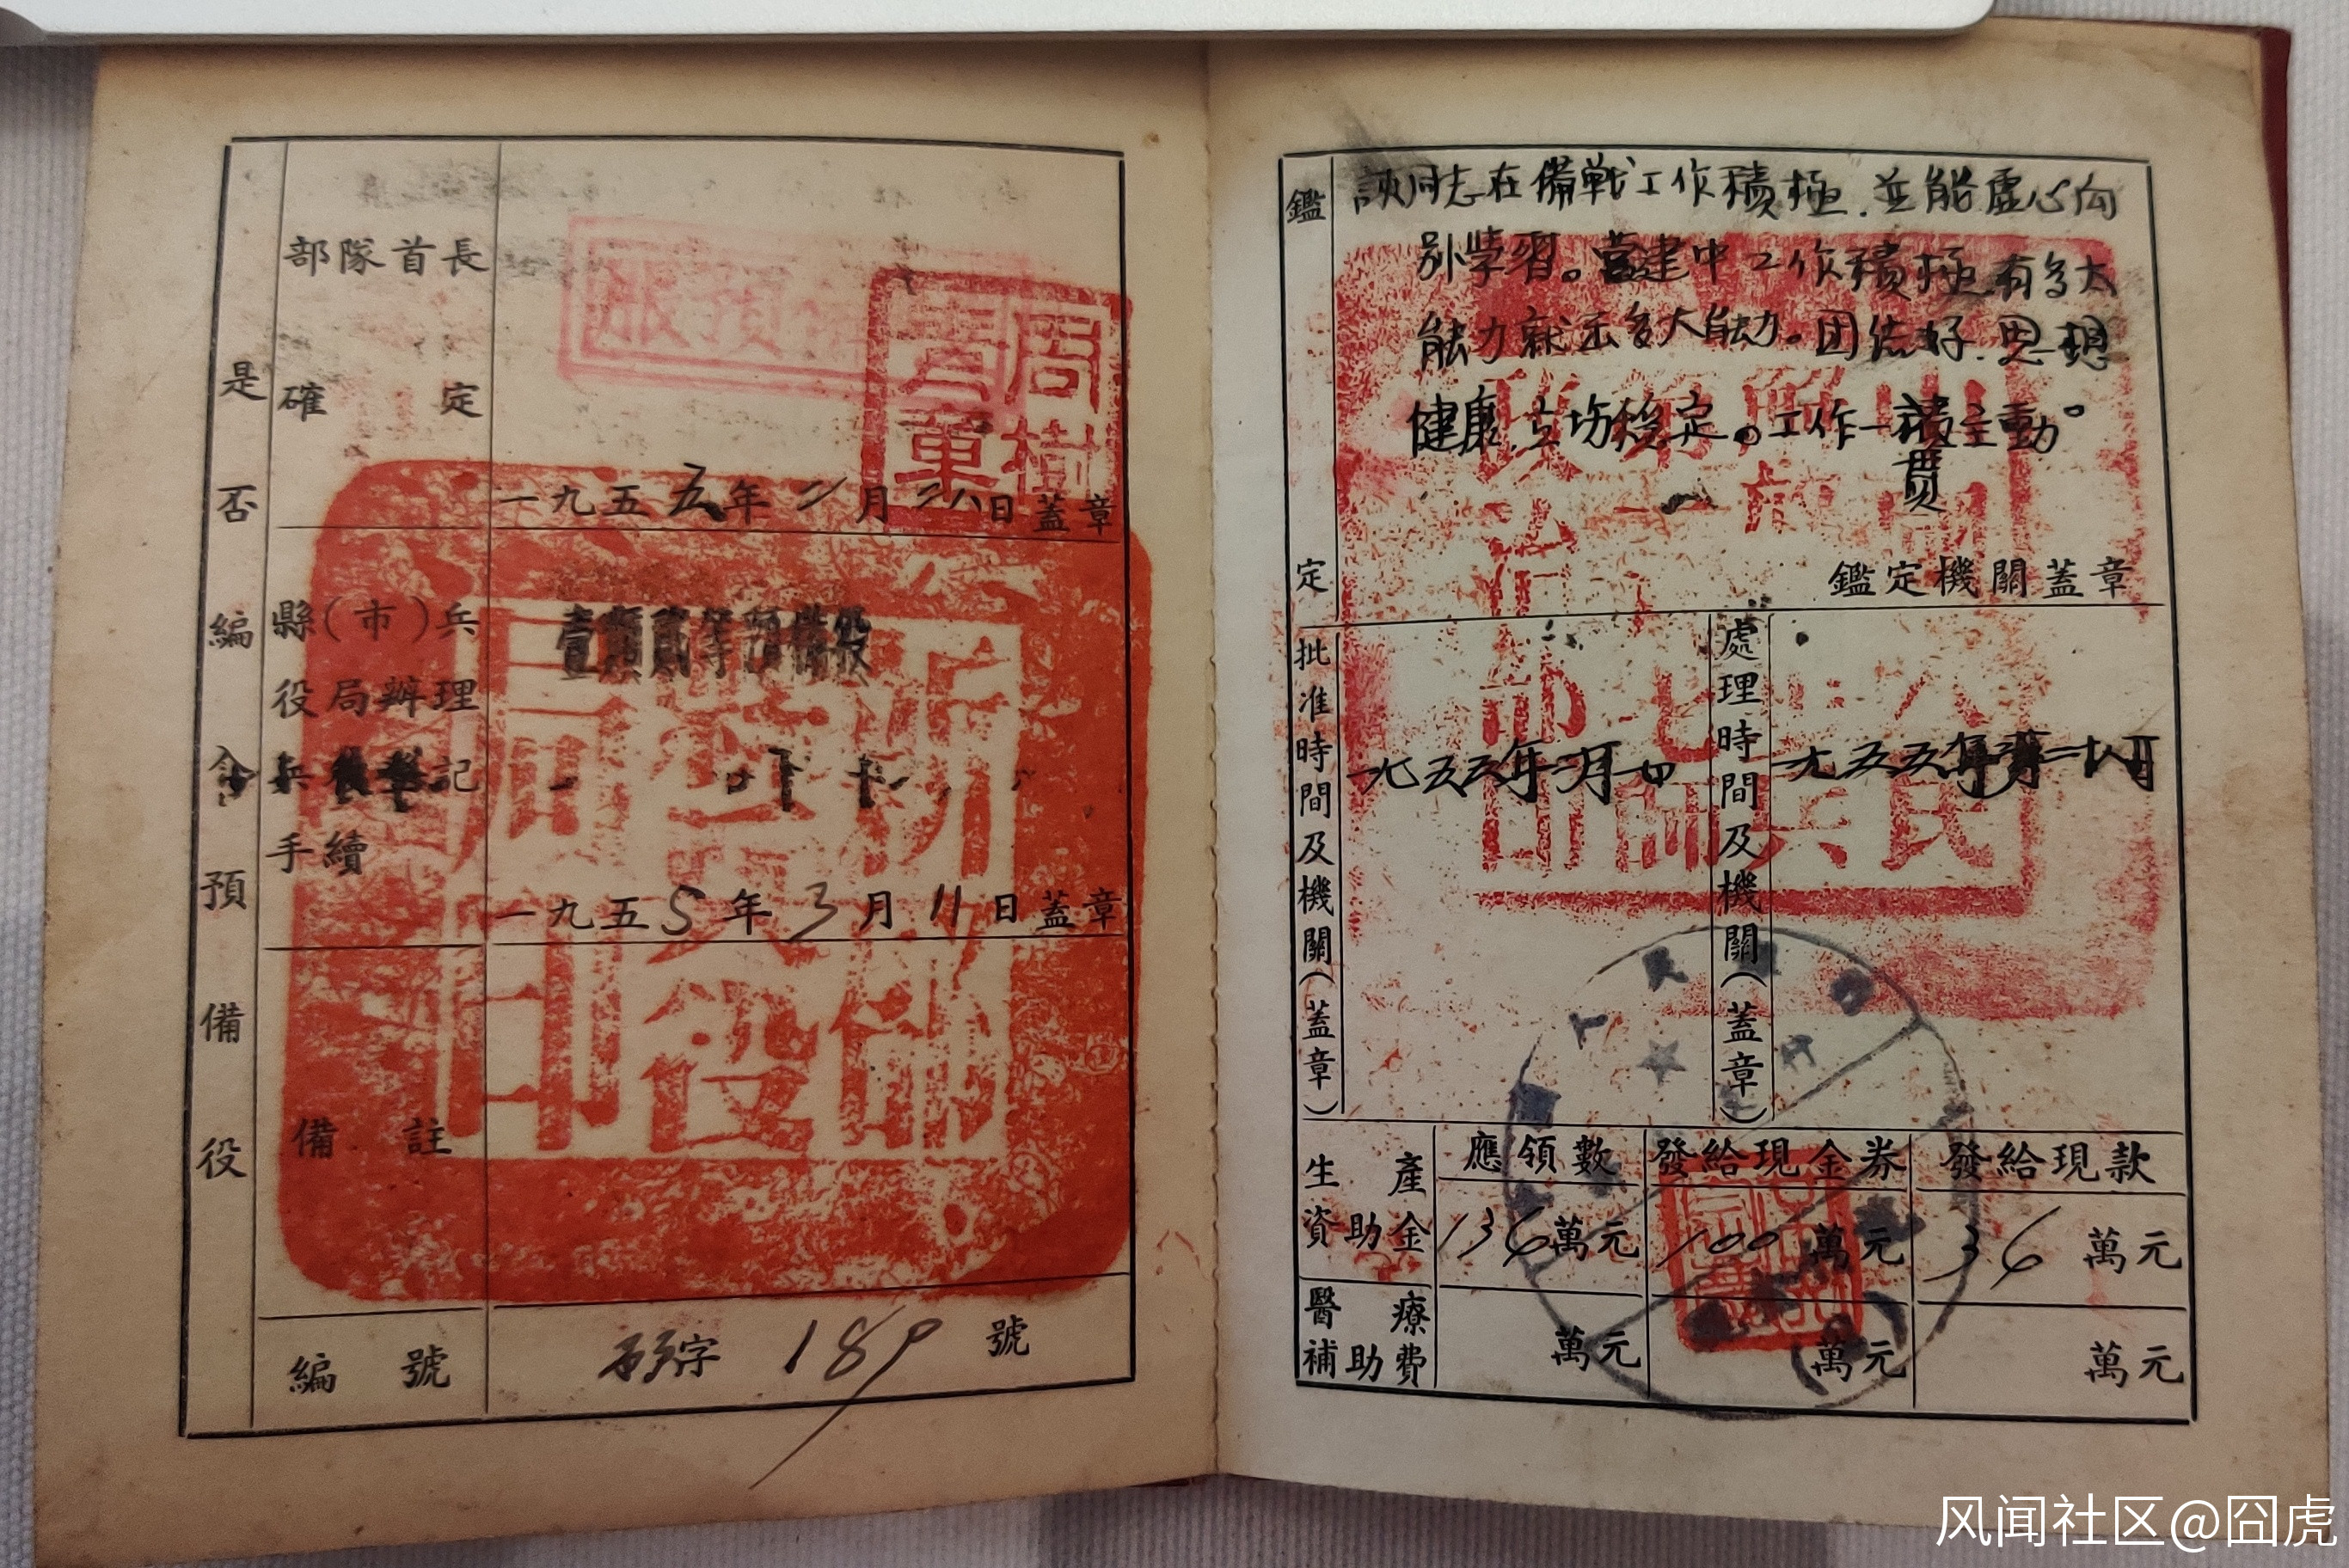 是否編入預備役
部隊首長
確定
周樹萱
一九五五年二月二八日蓋章
縣(市)兵
役局辦理
兵役登記
手續
壹類貳等預備役
一九五5年3月11日蓋章
備註
編號
字189號
鑑定
該同志在備戰工作積極.並能虛心向
別学習。营建中工作積極有多大
能力就出多大能力。团结好.思想
健康.立场稳定。工作一積主動。
贯
鑑定機關蓋章
批准時間及機關(蓋章)
一九五五年二月
處理時間及機關(蓋章)
一九五五年
生產
資助金
應領數
發給現金券
發給現款
136萬元
100萬元
36萬元
醫療
補助費
萬元
萬元
萬元
风闻社区@囧虎